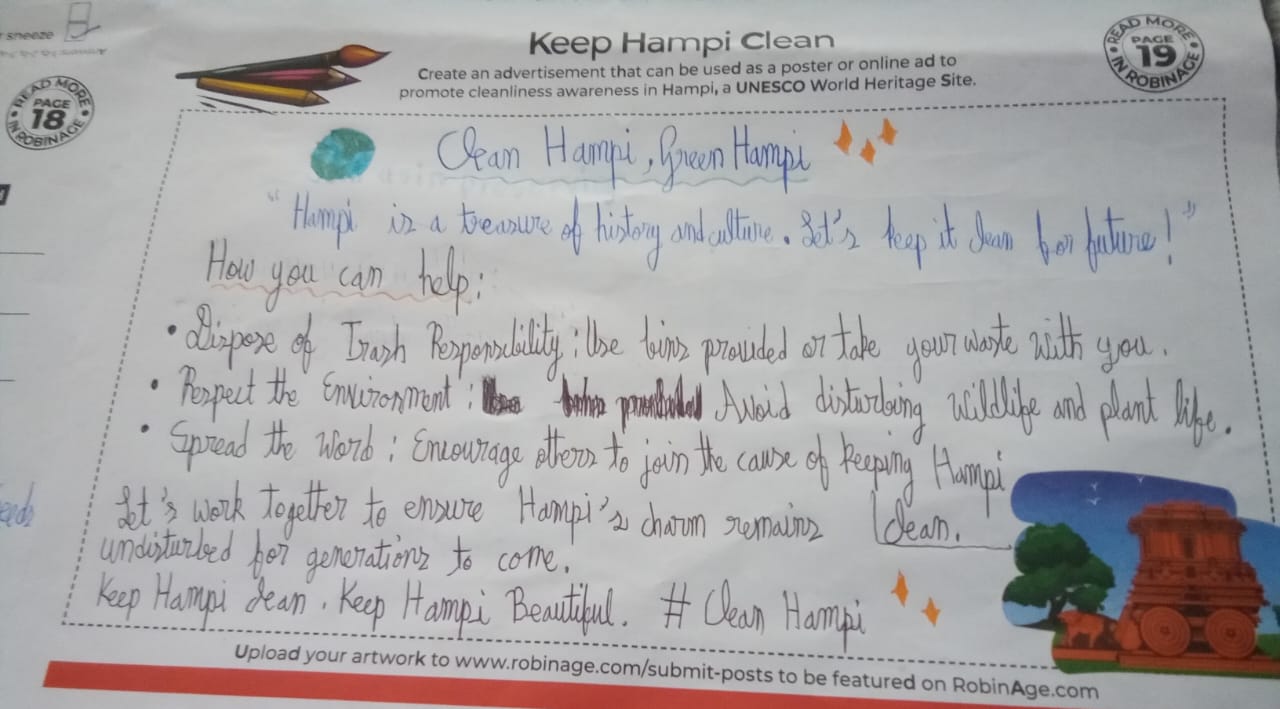 sneeze
READ MORE
PAGE
18
IN ROBINAGE
Keep Hampi Clean
Create an advertisement that can be used as a poster or online ad to
promote cleanliness awareness in Hampi, a UNESCO World Heritage Site.
READ MORE
PAGE
19
IN ROBINAGE
Clean Hampi, Green Hampi
"Hampi is a treasure of history and culture. Let's keep it clean for future!"
How you can help:
• Dispose of Trash Responsibility: Use bins provided or take your waste with you.
• Respect the Environment: Avoid disturbing wildlife and plant life.
• Spread the Word: Encourage others to join the cause of keeping Hampi
clean.
Let's work together to ensure Hampi's charm remains
undisturbed for generations to come.
Keep Hampi clean. Keep Hampi Beautiful. # Clean Hampi
Upload your artwork to www.robinage.com/submit-posts to be featured on RobinAge.com